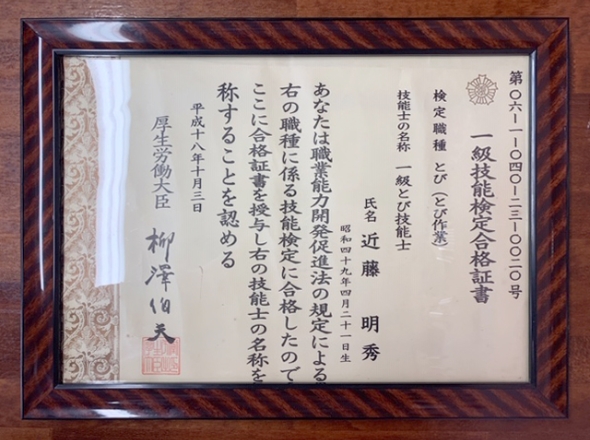 第〇六-一-〇四〇-二三-〇〇二〇号
一級技能検定合格証書
検定職種 とび（とび作業）
技能士の名称 一級とび技能士
氏名 近藤 明秀
昭和四十九年四月二十一日生
あなたは職業能力開発促進法の規定による
右の職種に係る技能検定に合格したので
ここに合格証書を授与し右の技能士の名称を
称することを認める
平成十八年十月三日
厚生労働大臣 柳澤伯夫